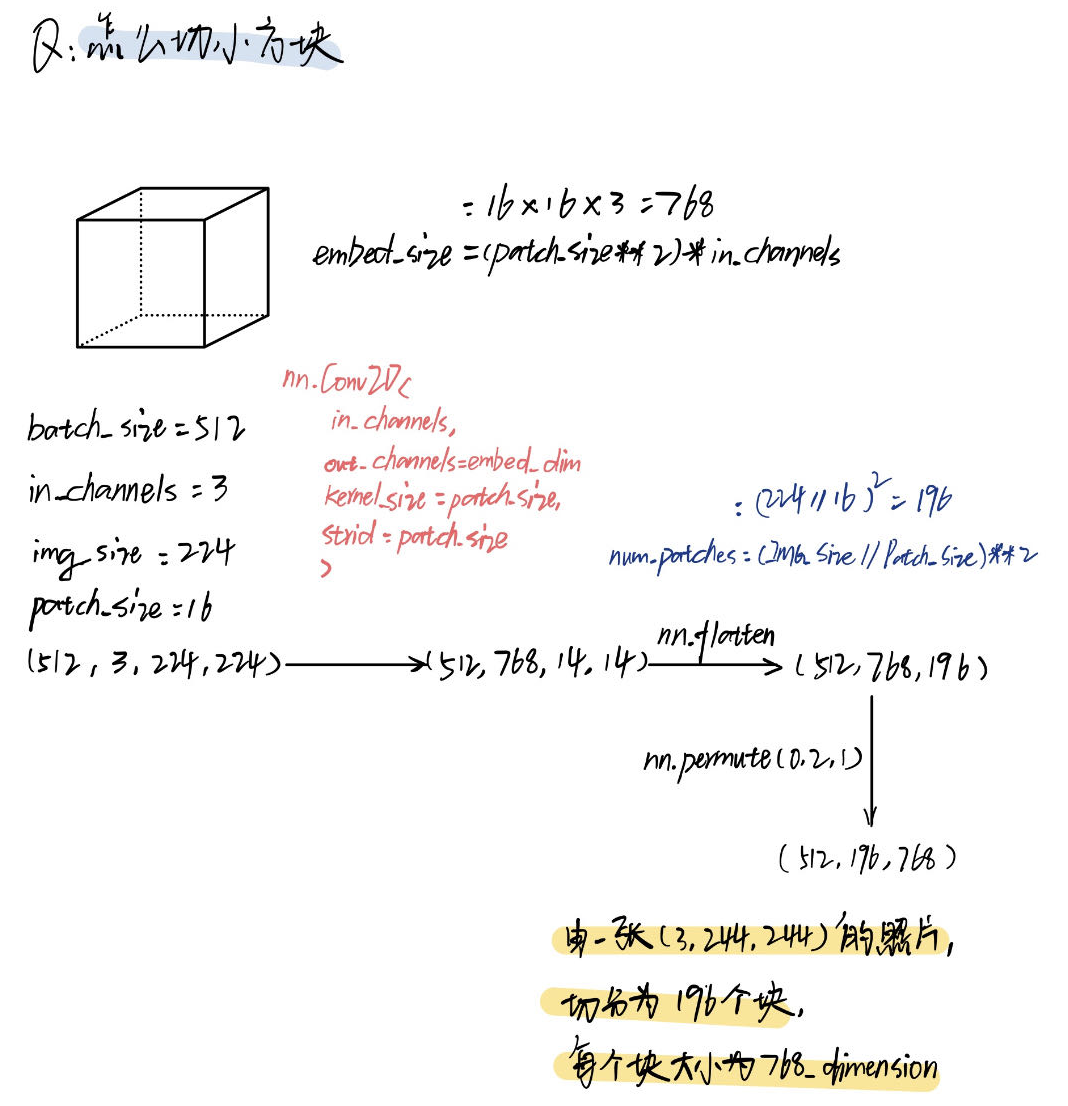 Q: 怎么切小方块
= 16 × 16 × 3 = 768
embed_size = (patch_size ** 2) * in_channels
nn.Conv2D(
in_channels,
out_channels=embed_dim
kernel_size = patch_size,
strid = patch_size
)
batch_size = 512
in_channels = 3
img_size = 224
patch_size = 16
= (224 // 16)² = 196
num_patches = (Img_Size // Patch_Size) ** 2
(512, 3, 224, 224)
(512, 768, 14, 14)
nn.flatten
(512, 768, 196)
nn.permute(0, 2, 1)
(512, 196, 768)
由一张(3, 244, 244)的照片,
切分为 196 个块,
每个块大小为 768_dimension